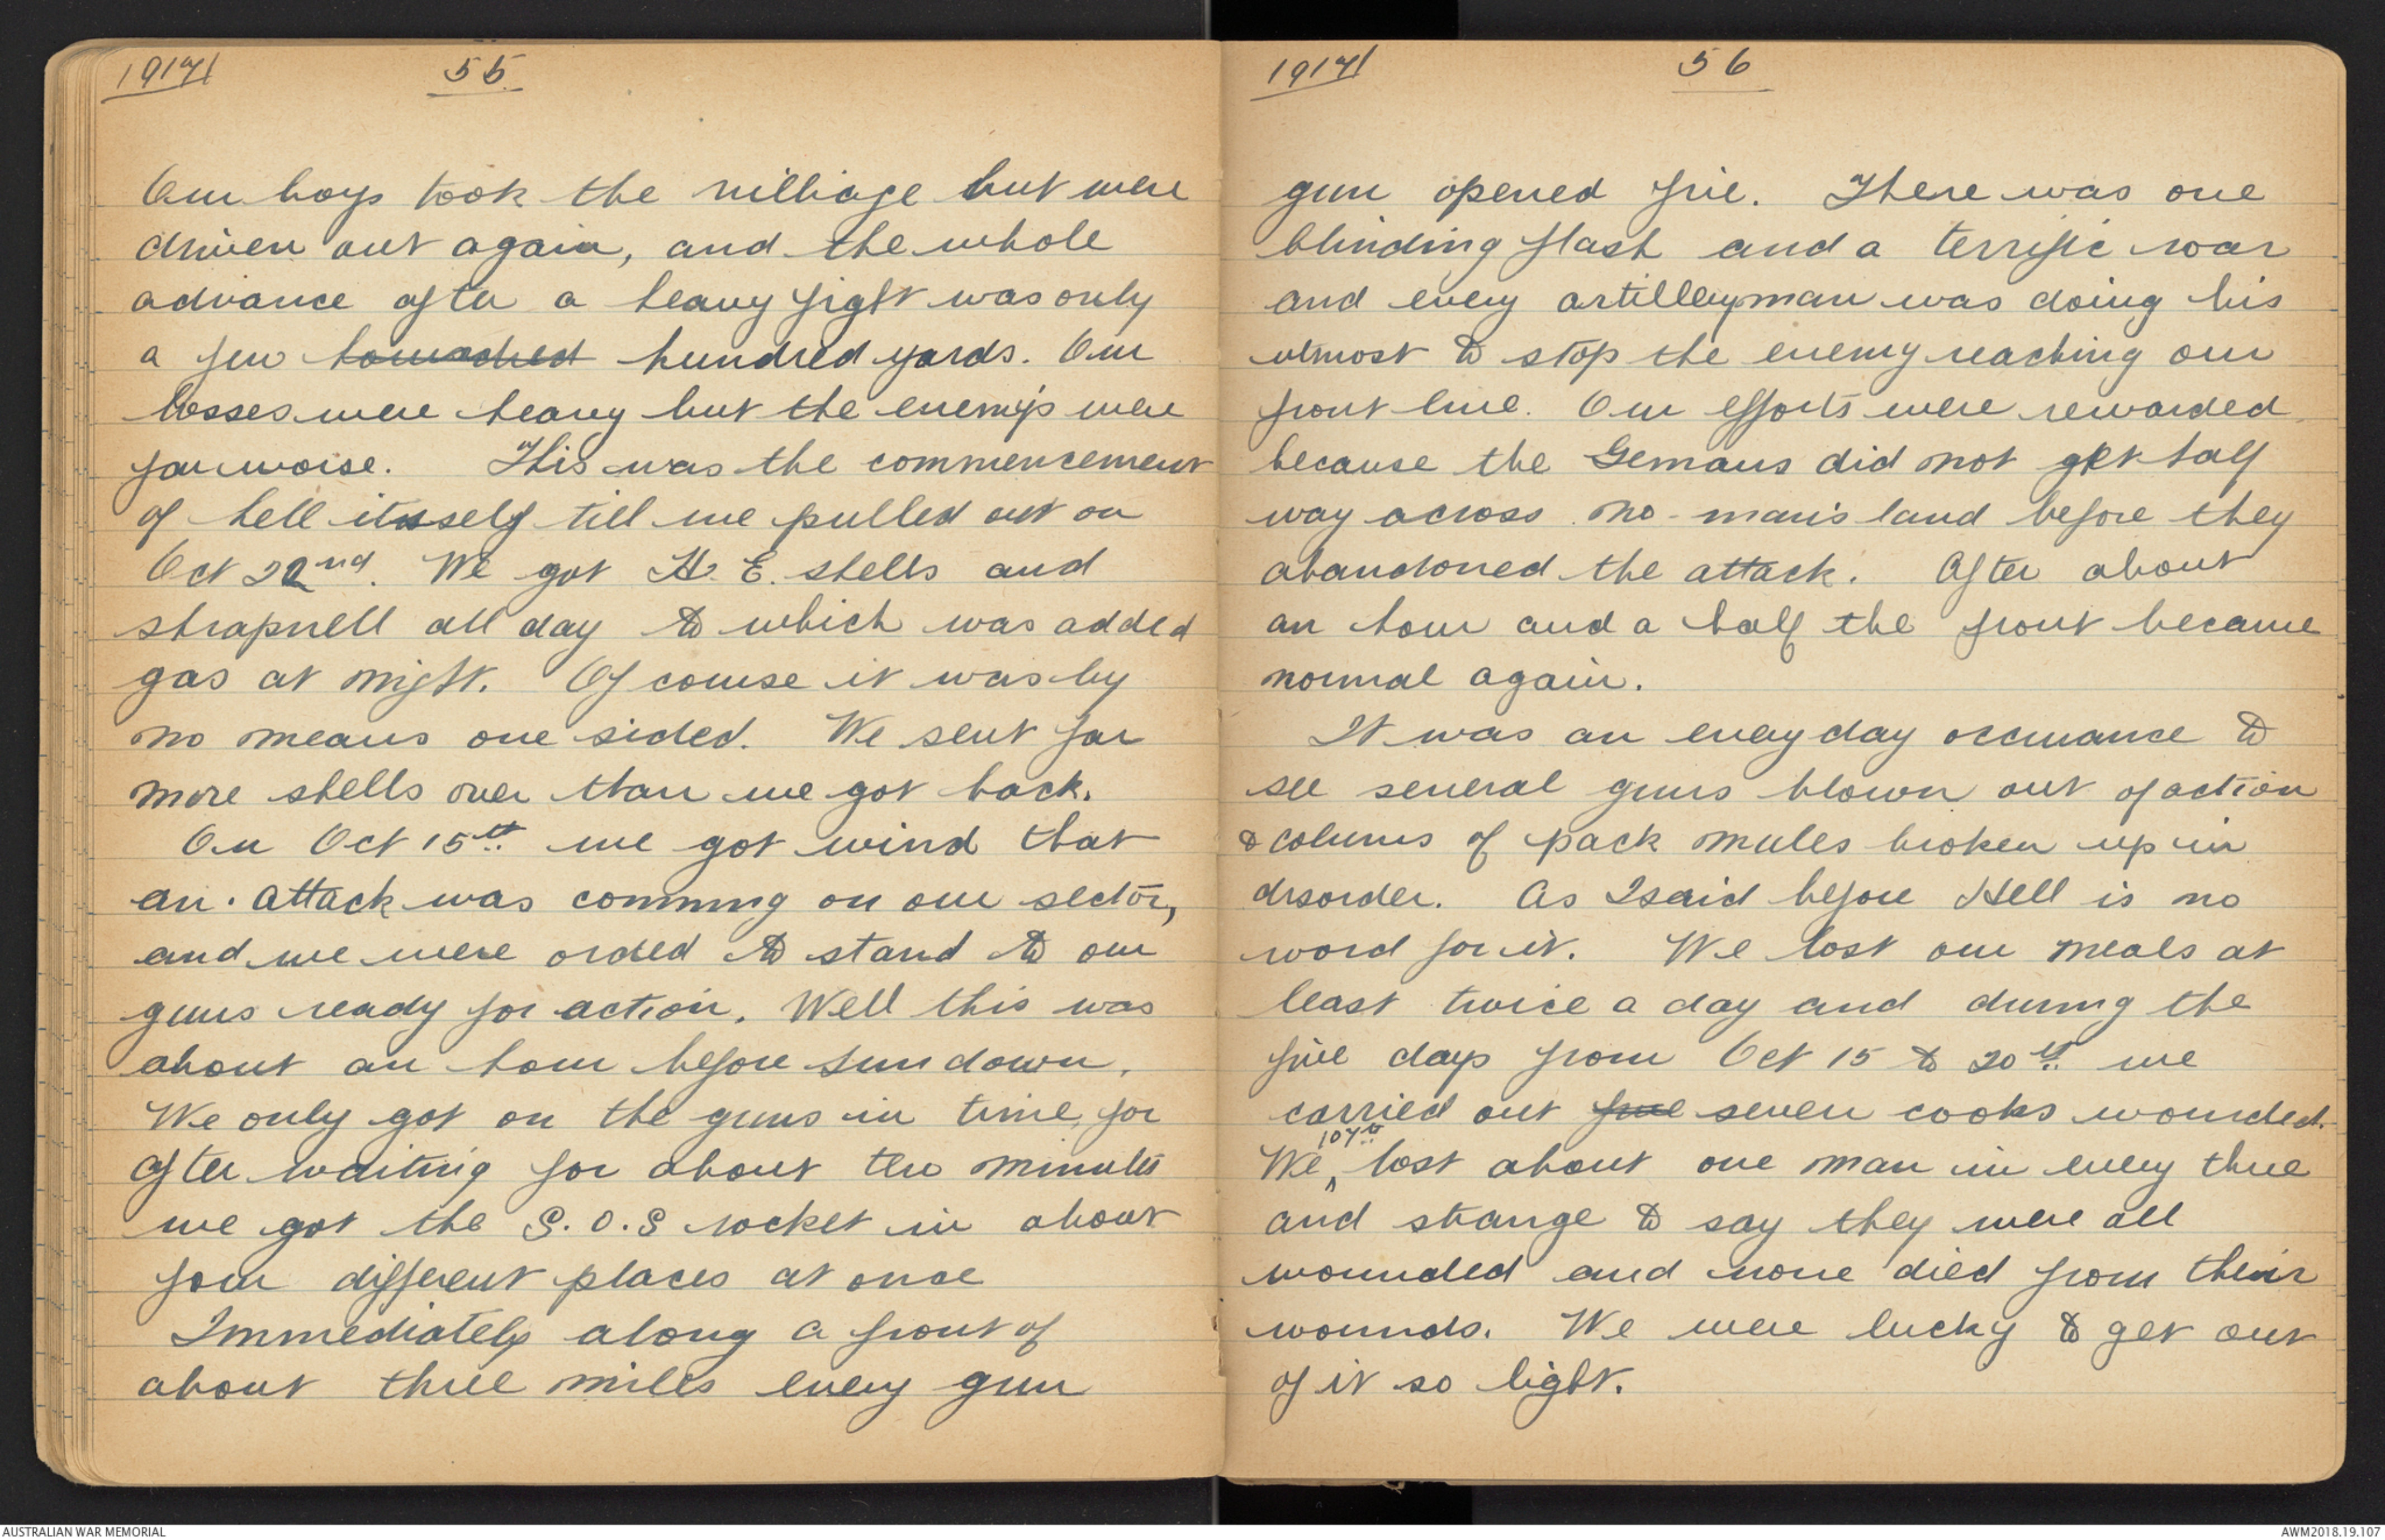 1917/
55.
Our boys took the villiage but were
driven out again, and the whole
advance after a heavy fight was only
a few hundred yards. Our
losses were heavy but the enemy's were
far worse. This was the commencement
of hell itself till we pulled out on
Oct 22nd. We got H. E. shells and
shrapnell all day to which was added
gas at night. Of course it was by
no means one sided. We sent far
more shells over than we got back.
On Oct 15th we got wind that
an attack was comming on our sector,
and we were orded to stand to our
guns ready for action. Well this was
about an hour before sundown.
We only got on the guns in time, for
after waiting for about ten minutes
we got the S.O.S rocket in about
four different places at once
Immediately along a front of
about three miles every gun
1917/
56
gun opened fire. There was one
blinding flash and a terrific roar
and every artilleryman was doing his
utmost to stop the enemy reaching our
front line. Our efforts were rewarded
because the Gemans did not get half
way across no-man's land before they
abandoned the attack. After about
an hour and a half the front became
normal again.
It was an everyday occurance to
see several guns blown out of action
& colums of pack mules broken up in
disorder. As I said before Hell is no
word for it. We lost our meals at
least twice a day and during the
five days from Oct 15 to 20th we
carried out five seven cooks wounded.
We 107th lost about one man in every three
and strange to say they were all
wounded and none died from their
wounds. We were lucky to get out
of it so light.
AUSTRALIAN WAR MEMORIAL
AWM2018.19.107